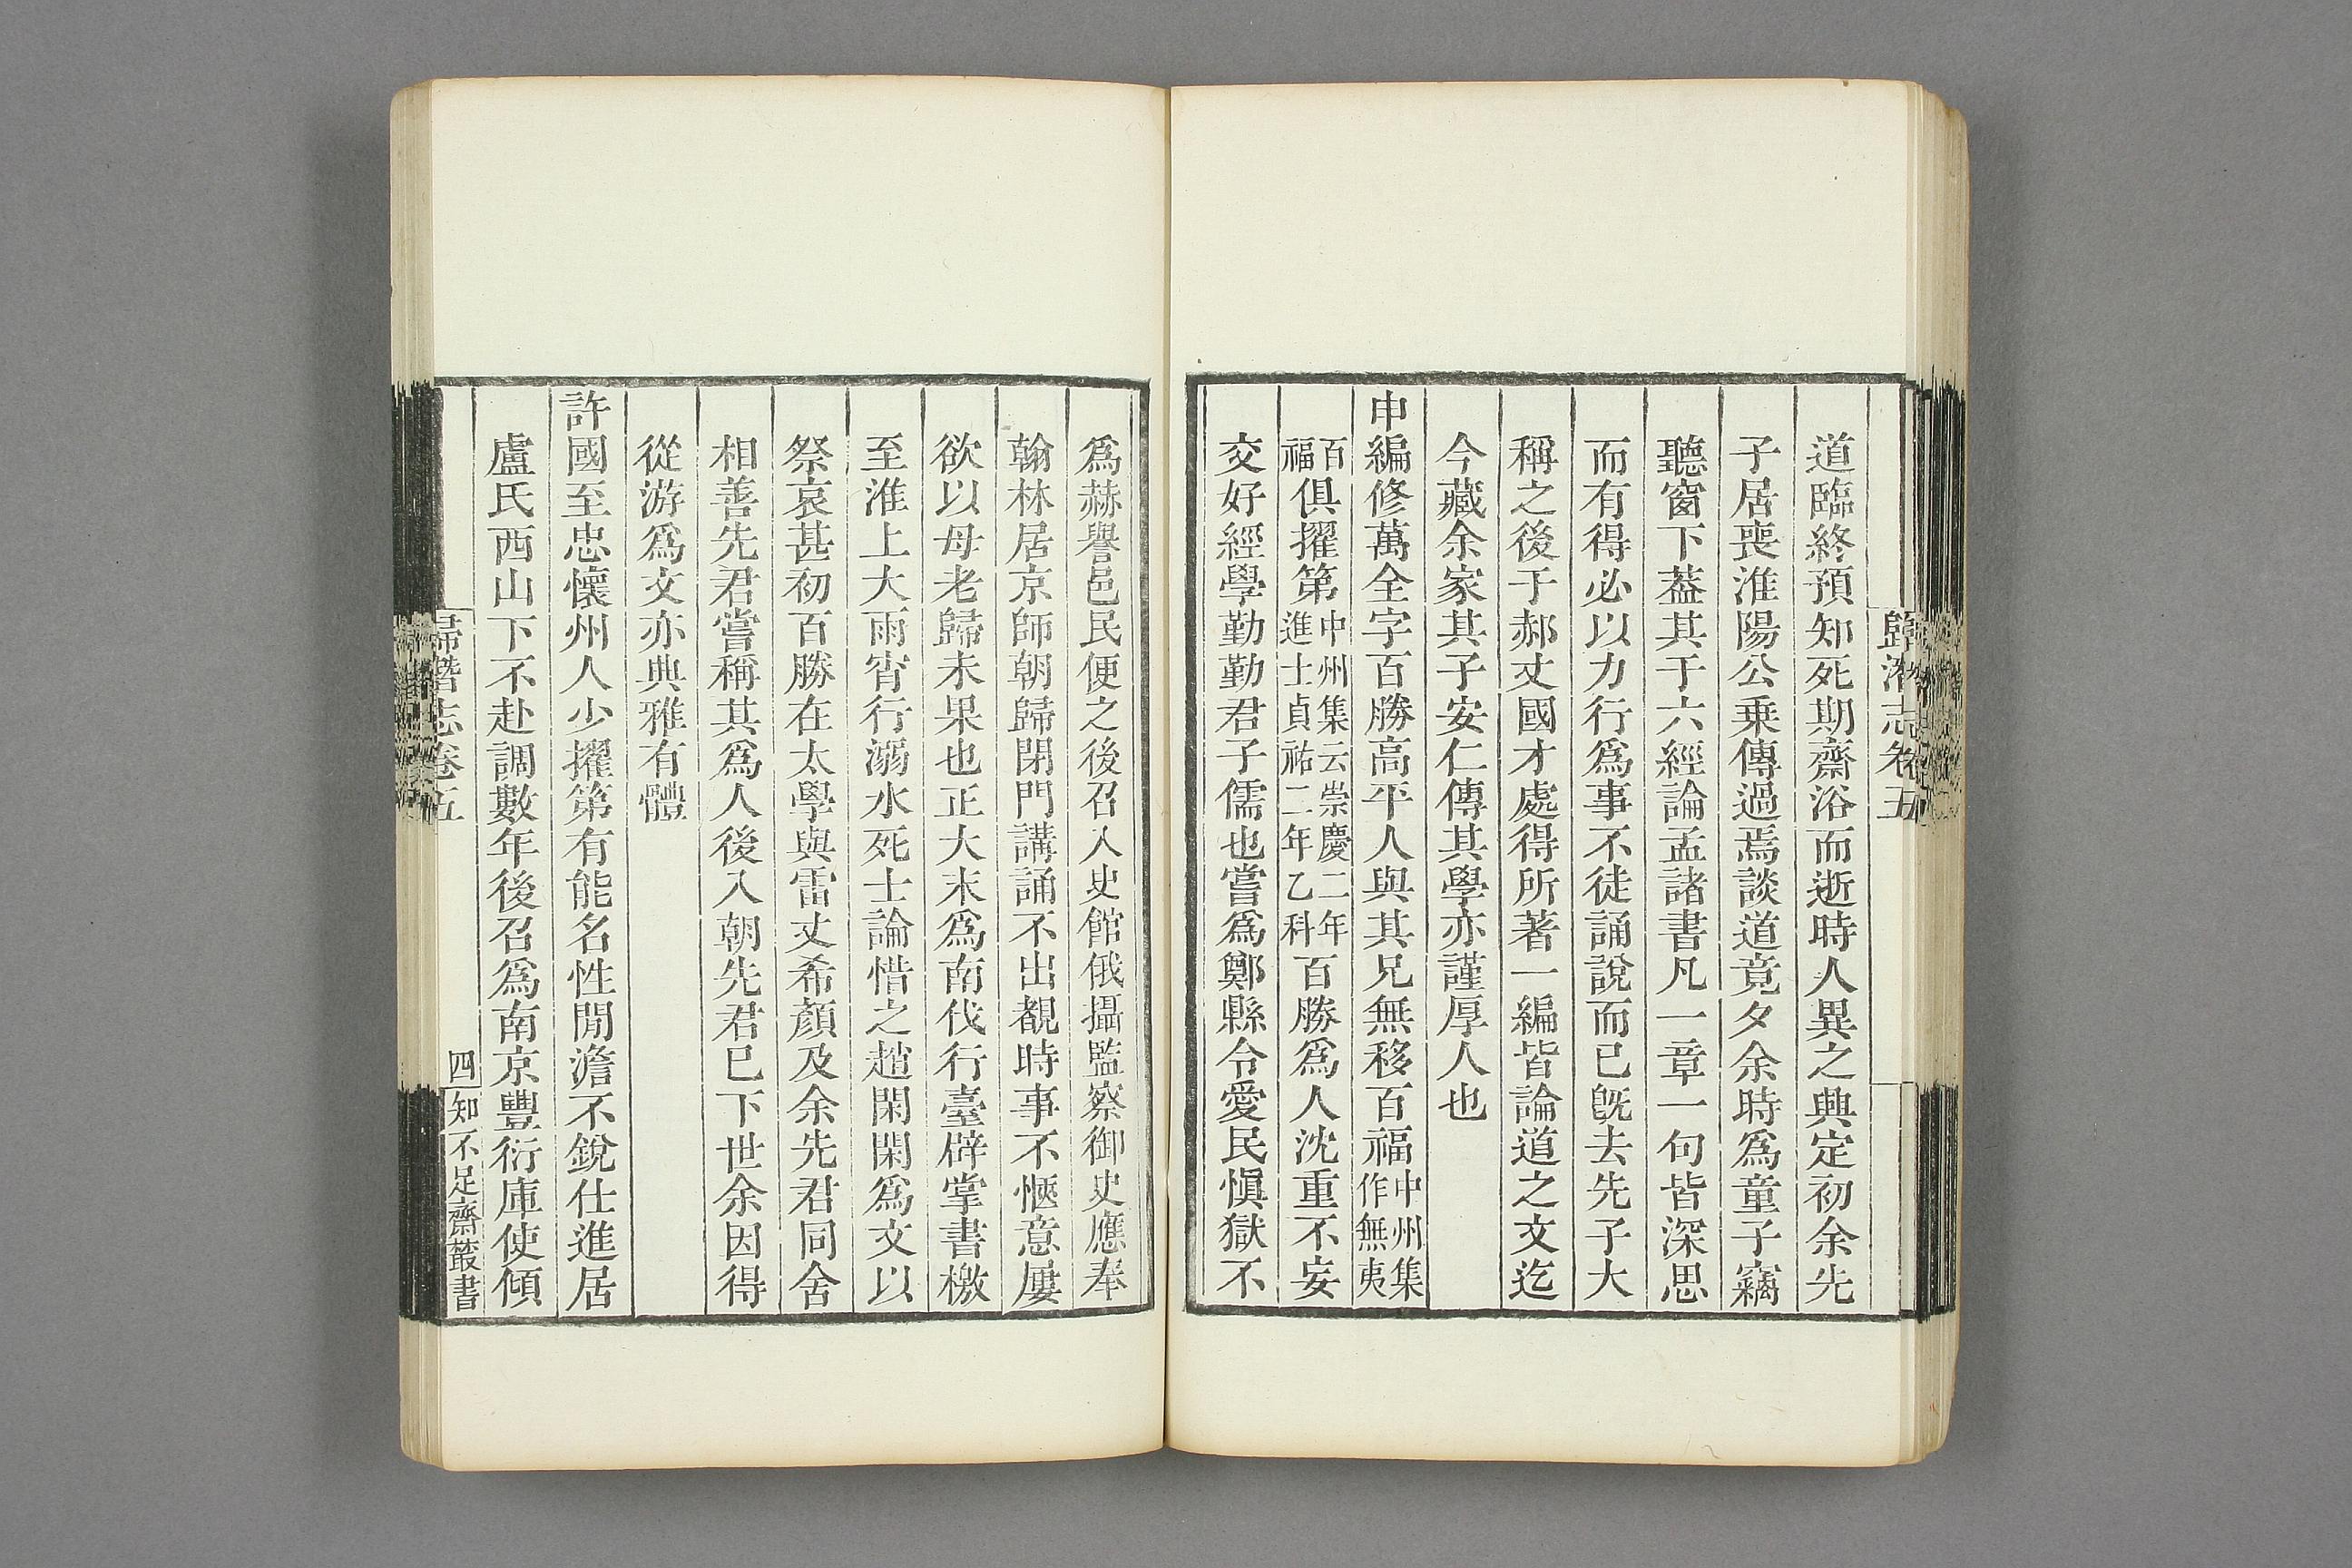 歸潛志卷五
道臨終預知死期齋浴而逝時人異之興定初余先
子居喪淮陽公乗傳過焉談道竟夕余時爲童子竊
聽窗下葢其于六經論孟諸書凡一章一句皆深思
而有得必以力行爲事不徒誦說而已旣去先子大
稱之後于郝丈國才處得所著一編皆論道之文迄
今藏余家其子安仁傳其學亦謹厚人也
申編修萬全字百勝高平人與其兄無移百福中州集作無夷
百福俱擢第中州集云崇慶二年進士貞祐二年乙科百勝爲人沈重不妄
交好經學勤勤君子儒也嘗爲鄭縣令愛民愼獄不
爲赫譽邑民便之後召入史館俄攝監察御史應奉
翰林居京師朝歸閉門講誦不出覩時事不愜意屢
欲以母老歸未果也正大末爲南伐行臺辟掌書檄
至淮上大雨宵行溺水死士論惜之趙閑閑爲文以
祭哀甚初百勝在太學與雷丈希顏及余先君同舍
相善先君嘗稱其爲人後入朝先君已下世余因得
從游爲文亦典雅有體
許國至忠懷州人少擢第有能名性閒澹不銳仕進居
盧氏西山下不赴調數年後召爲南京豐衍庫使傾
歸潛志卷五
四
知不足齋叢書